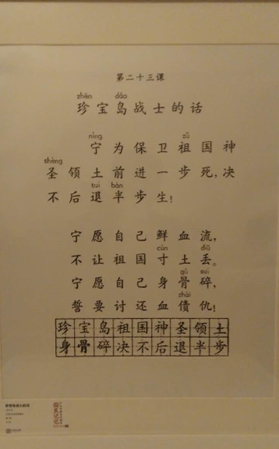 第二十三课
zhēn dǎo
珍宝岛战士的话
nìng zǔ
宁为保卫祖国神
shèng
圣领土前进一步死,决
tuì bàn
不后退半步生!
宁愿自己鲜血流,
cùn diū
不让祖国寸土丢。
gǔ suì
宁愿自己身骨碎,
zhài
誓要讨还血债仇!
珍宝岛祖国神圣领土
身骨碎决不后退半步